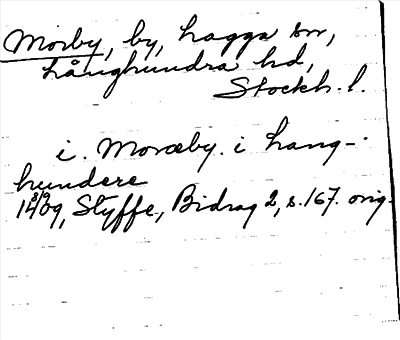 Morby, by, Lagga sn,
Långhundra hd,
Stockh. l.
i. Moræby. i Lang-
hundere
1409, Styffe, Bidrag 2, s. 167. orig.